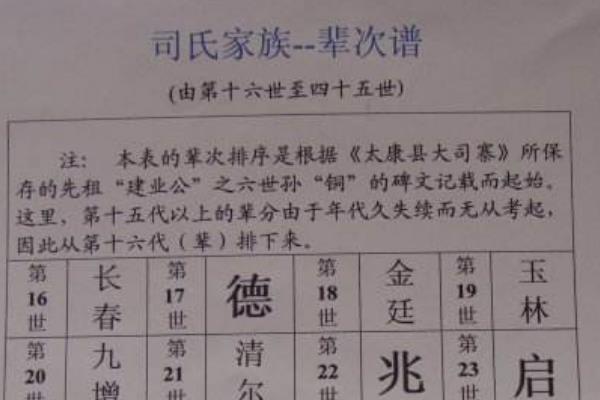 司氏家族--辈次谱
(由第十六世至四十五世)
注： 本表的辈次排序是根据《太康县大司寨》所保
存的先祖“建业公”之六世孙“铜”的碑文记载而起始。
这里，第十五代以上的辈分由于年代久失续而无从考起，
因此从第十六代（辈）排下来。
第16世 长春 第17世 德 第18世 金廷 第19世 玉林
第20世 九增 第21世 清尔 第22世 兆 第23世 启